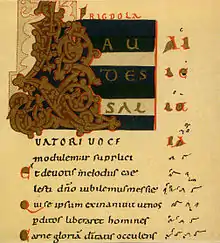 RIGDOLA
LAU Al
DES le
SAL lu
UATORI UOCE ia
modulemur supplici
Et deuotis melodiis cae
lesti dño iubilemus messie
Qui se ipsum exinaniuit ut nos
pditos liberaret homines
Carne gloriā deitatis occulens